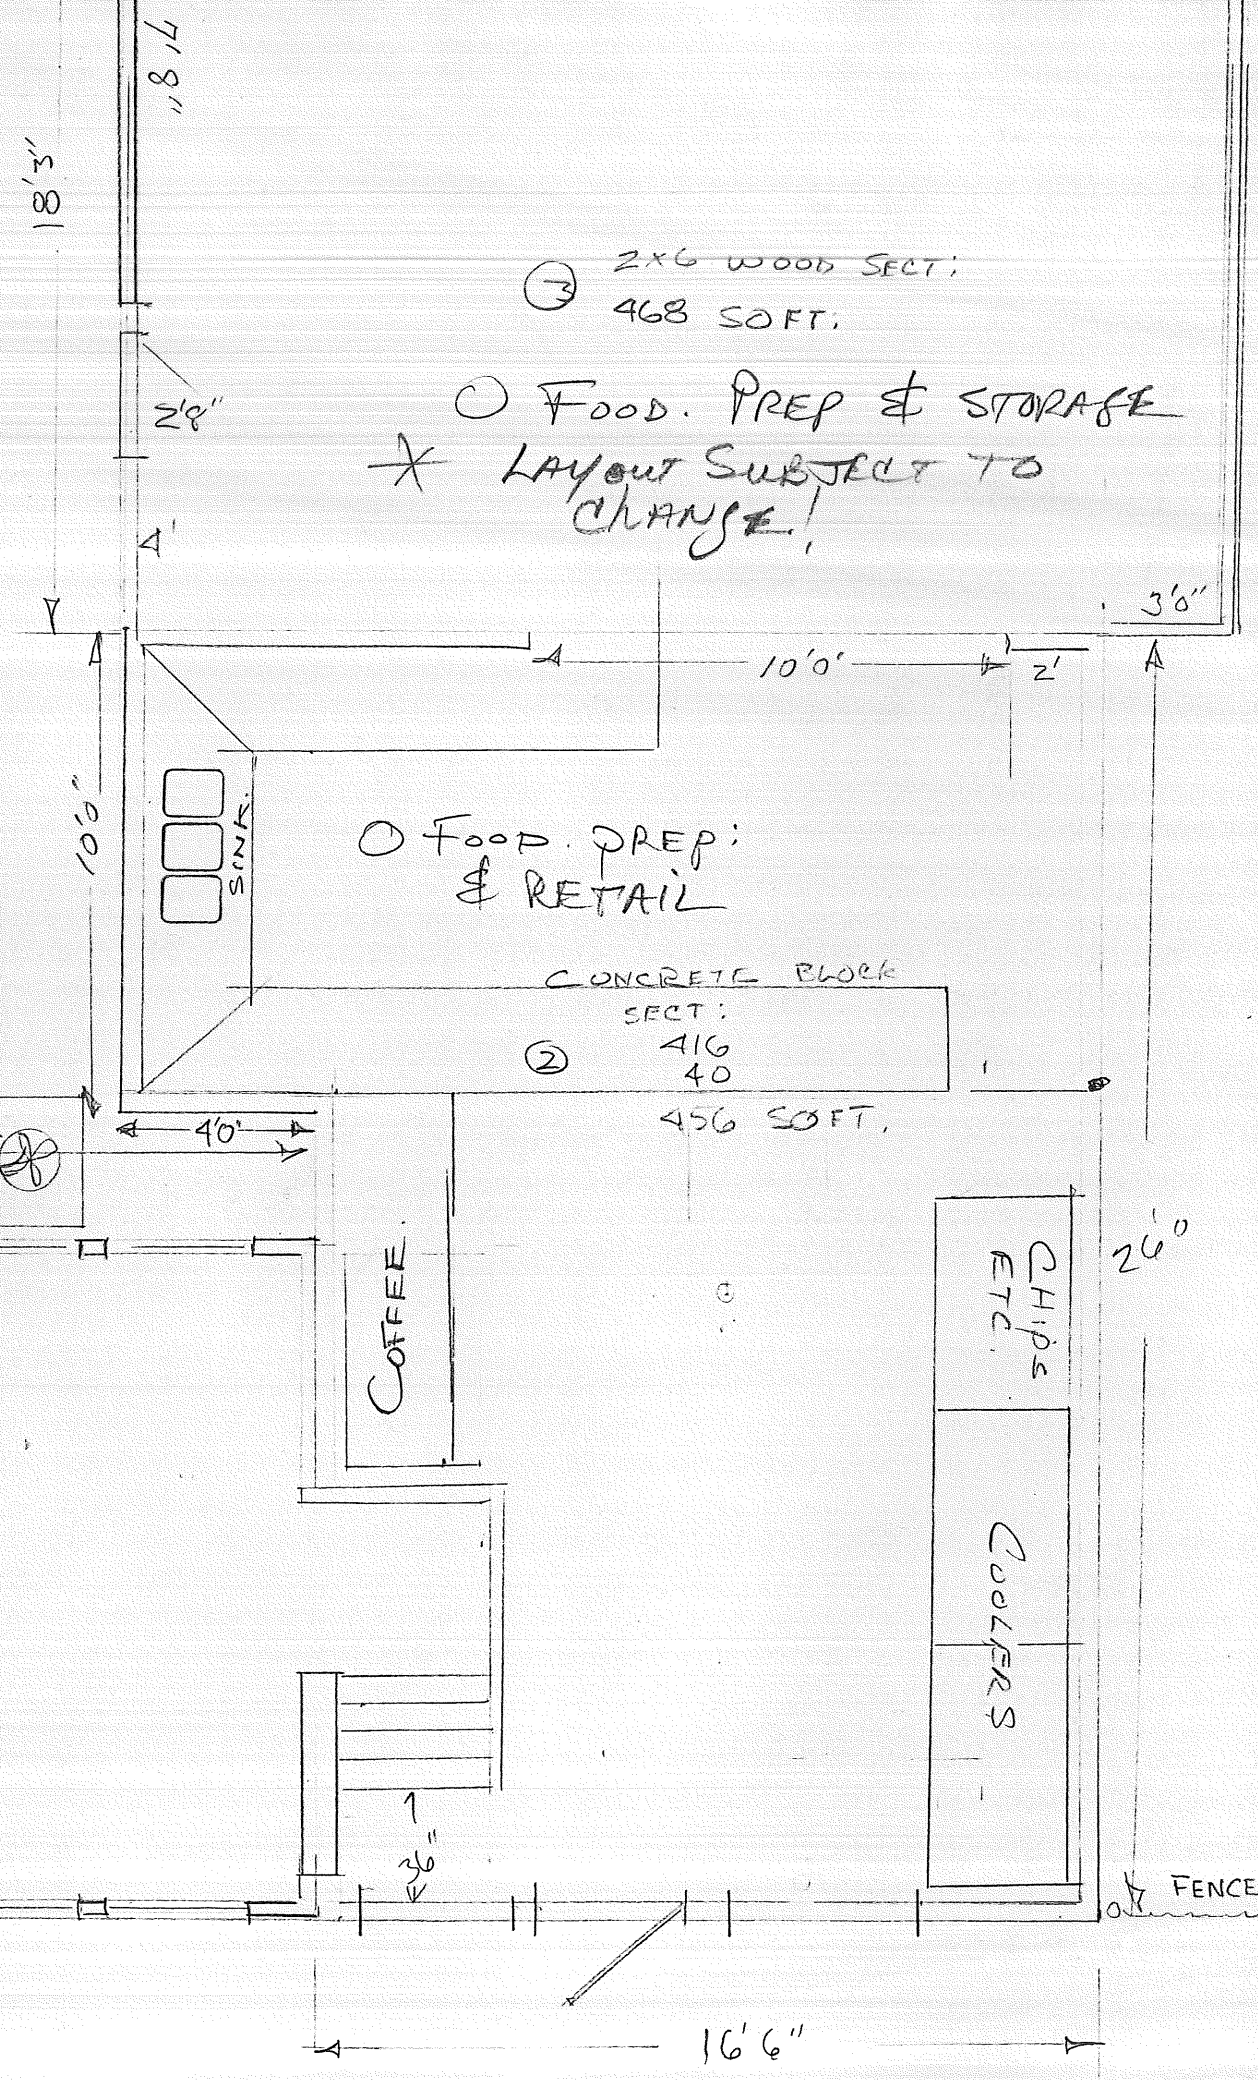 7'8"
18'3"
③ 2x6 WOOD SECT:
468 SQFT.
○ FOOD. PREP & STORAGE
2'8"
* LAYOUT SUBJECT TO
CHANGE!
4'
3'0"
10'0"
2'
10'0"
SINK.
○ FOOD. PREP:
& RETAIL
CONCRETE BLOCK
SECT:
② 416
40
456 SQFT.
4'0"
COFFEE.
CHIPS
ETC.
26'0
COOLERS
36"
FENCE
16'6"